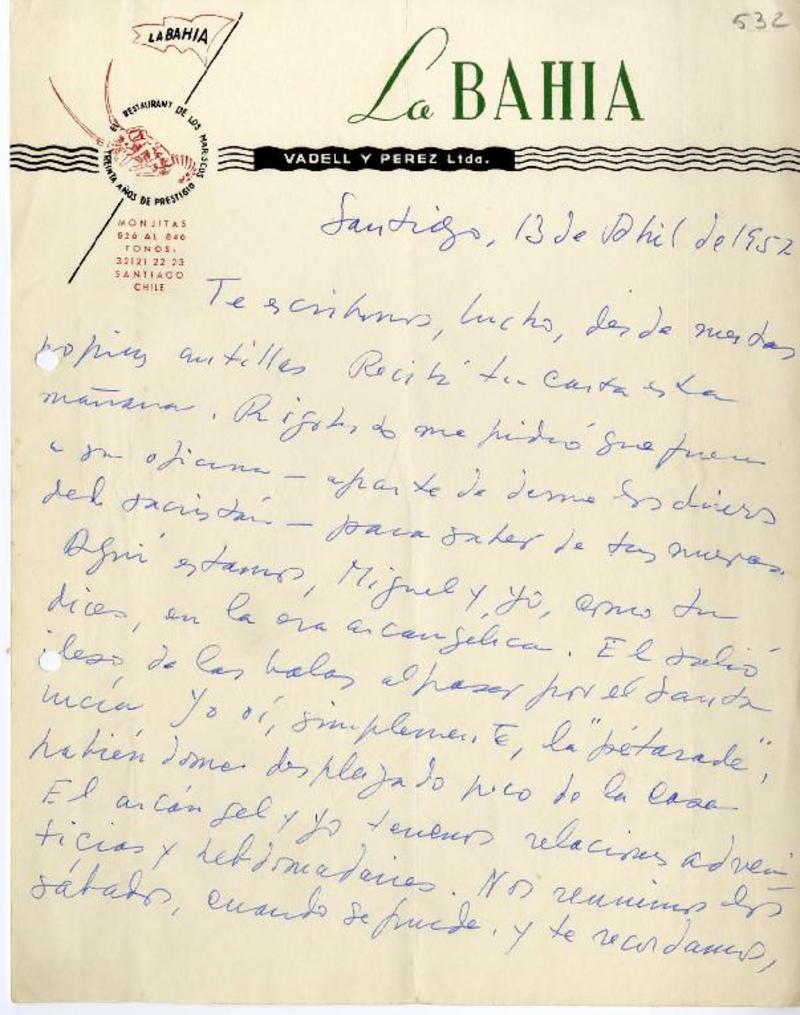 532
LA BAHIA
RESTAURANT DE LOS MARISCOS
TREINTA AÑOS DE PRESTIGIO
La BAHIA
VADELL Y PEREZ Ltda.
MONJITAS
826 AL 846
FONOS.
32121 22 23
SANTIAGO
CHILE
Santiago, 13 de Abril de 1957
Te escribimos, Lucho, desde nuestras
propias antillas Recibí tu carta esta
mañana. Rigoberto me pidió que fuera
a su oficina – aparte de darme los dineros
del sacristán – para saber de tus nuevas.
Aquí estamos, Miguel y yo, como tu
dices, en la era arcangélica. El salió
ileso de las balas al pasar por el Santa
Lucía Yo oí, simplemente, la "pétarade",
habiéndome desplazado poco de la casa
El arcángel y yo tenemos relaciones adven
ticias y hebdomadarias. Nos reunimos los
sábados, cuando se puede. y te recordamos,